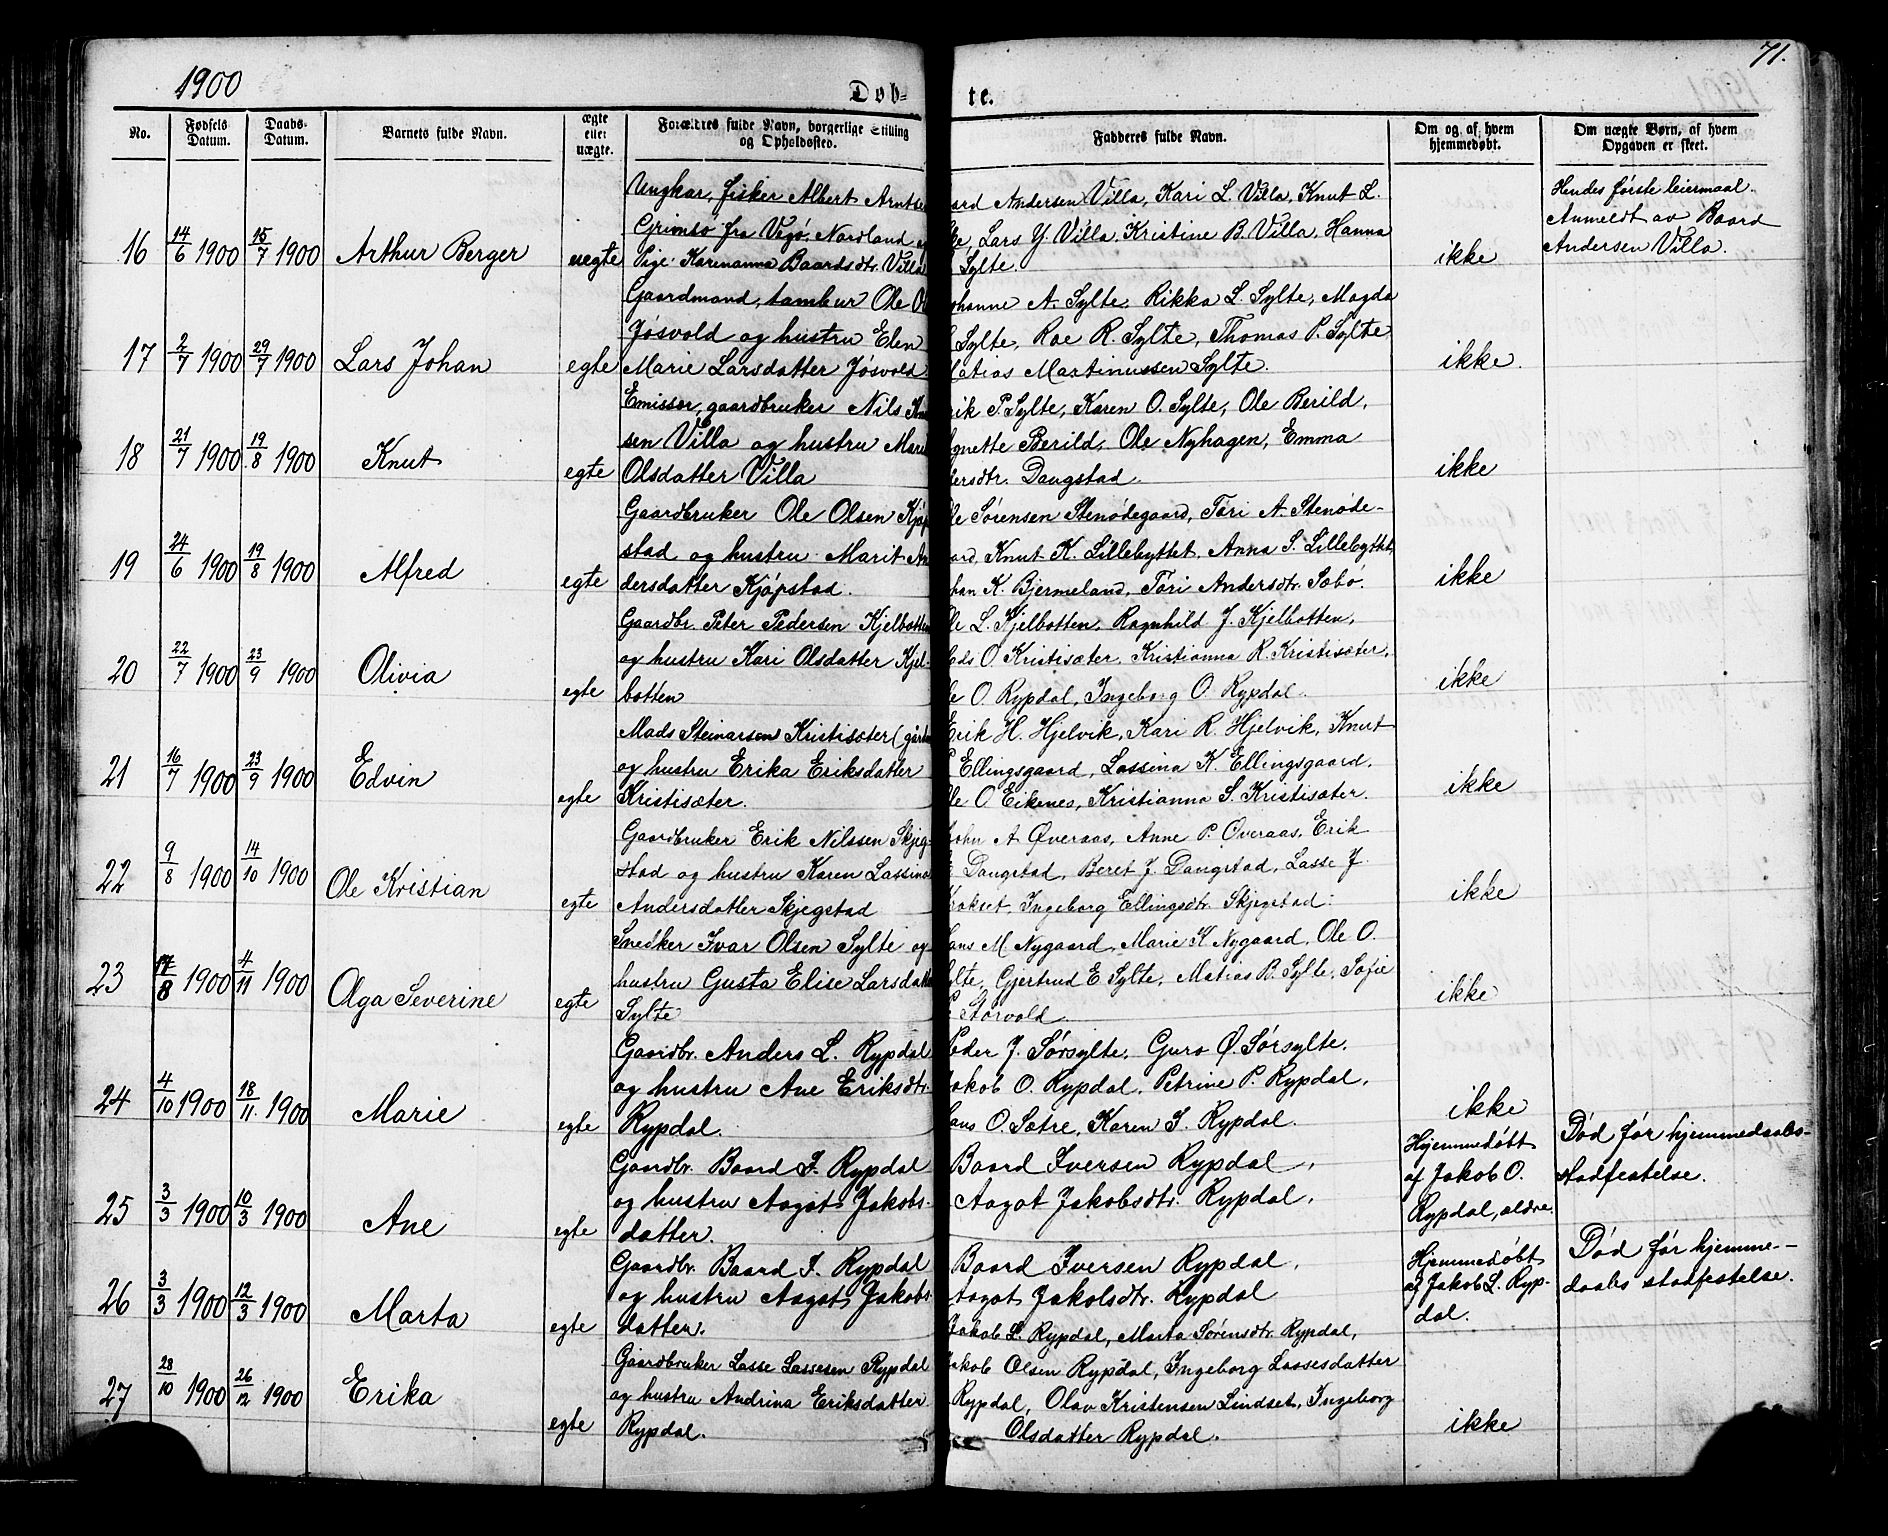 1900
Døb-
te.
71.
No.
Fødsels Datum.
Daabs-Datum.
Barnets fulde Navn.
ægte eller uægte.
Forældres fulde Navn, borgerlige Stilling og Opholdssted.
Fadderes fulde Navn.
Om og af hvem hjemmedøbt.
Om uægte Børn, af hvem Opgaven er skeet.
16 14/6 1900 15/7 1900 Arthur Berger uegte
Ungkar, fisker Albert Arntse
Grimsø fra Vågø, Nordland og
Pige Karenanna Baardsdtr. Villa
ard Andersen Villa, Kari L. Villa, Knut L.
, Lars Y. Villa, Kristine B. Villa, Hanna
Sylte.
ikke
Hendes første leiermaal.
Anmeldt av Baard
Andersen Villa.
17 2/7 1900 29/7 1900 Lars Johan egte
Gaardmand, tambur Ole O
Jøsvold og hustru Elen
Marie Larsdatter Jøsvold
ohanne A. Sylte, Rikka L. Sylte, Magda
Sylte, Roe R. Sylte, Thomas P. Sylte
atias Martinussen Sylte.
ikke.
18 21/7 1900 19/8 1900 Knut egte
Emissær, gaardbruker Nils Knu
sen Villa og hustru Mari
Olsdatter Villa
rik P. Sylte, Karen O. Sylte, Ole Berild,
gnette Berild, Ole Nyhagen, Emma
dersdtr. Daugstad.
ikke
19 24/6 1900 19/8 1900 Alfred egte
Gaardbruker Ole Olsen Kjøp
stad og hustru Marit An
dersdatter Kjøpstad.
le Sørensen Stenødegaard, Tøri A. Stenøde-
ard, Knut K. Lillebyttet, Anna S. Lillebyttet,
han K. Bjermeland, Tøri Andersdtr. Sæbø.
ikke
20 22/7 1900 23/9 1900 Olivia egte
Gaardbr. Peter Pedersen Kjelbotten
og hustru Kari Olsdatter Kjel-
botten
le L. Kjelbotten, Ragnhild J. Kjelbotten,
ads O. Kristisæter, Kristianna R. Kristisæter,
le O. Rypdal, Ingeborg O. Rypdal.
ikke
21 16/7 1900 23/9 1900 Edvin egte
Mads Steinarsen Kristisæter (går
og hustru Erika Eriksdatter
Kristisæter.
Erik H. Hjelvik, Kari R. Hjelvik, Knut
Ellingsgaard, Lassina K. Ellingsgaard,
le O. Eikenes, Kristianna S. Kristisæter.
ikke
22 9/8 1900 14/10 1900 Ole Kristian egte
Gaardbruker Erik Nilssen Skjeg-
stad og hustru Karen Lassina
Andersdatter Skjegstad
ohn A. Øveraas, Anne P. Øveraas, Erik
Daugstad, Beret J. Daugstad, Lasse J.
okset, Ingeborg Ellingsdtr. Skjegstad.
ikke
23 17/8 1900 4/11 1900 Olga Severine egte
Snedker Ivar Olsen Sylte og
hustru Gusta Elise Larsdatte
Sylte
ans M. Nygaard, Marie K. Nygaard, Ole O.
ylte, Gjertrud E. Sylte, Matias B. Sylte, Sofie
Storvold.
ikke
24 4/10 1900 18/11 1900 Marie egte
Gaardbr. Anders L. Rypdal
og hustru Ane Eriksdtr.
Rypdal.
Peder J. Sørsylte, Guro Ø. Sørsylte,
akob O. Rypdal, Petrine P. Rypdal,
ans O. Sætre, Karen I. Rypdal.
ikke
25 3/3 1900 10/3 1900 Ane egte
Gaardbr. Baard I. Rypdal
og hustru Aagot Jakobs-
datter.
Baard Iversen Rypdal,
Aagot Jakobsdtr. Rypdal,
Hjemmedøbt
af Jakob O.
Rypdal, ældre.
Død før hjemmedaabs-
stadfestelse.
26 3/3 1900 12/3 1900 Marta egte
Gaardbr. Baard I. Rypdal
og hustru Aagot Jakobs-
datter.
Baard Iversen Rypdal,
Aagot Jakobsdtr. Rypdal
Jakob L. Rypdal, Marta Sørensdtr. Rypdal,
Hjemmedøbt
af Jakob L. Ryp-
dal.
Død før hjemme-
daabs stadfestelse.
27 28/10 1900 26/12 1900 Erika egte
Gaardbruker Lasse Lassesen Rypdal
og hustru Andrina Eriksdatter
Rypdal.
Jakob Olsen Rypdal, Ingeborg Lassesdatter
Rypdal, Olav Kristensen Lindset, Ingeborg
Olsdatter Rypdal.
ikke